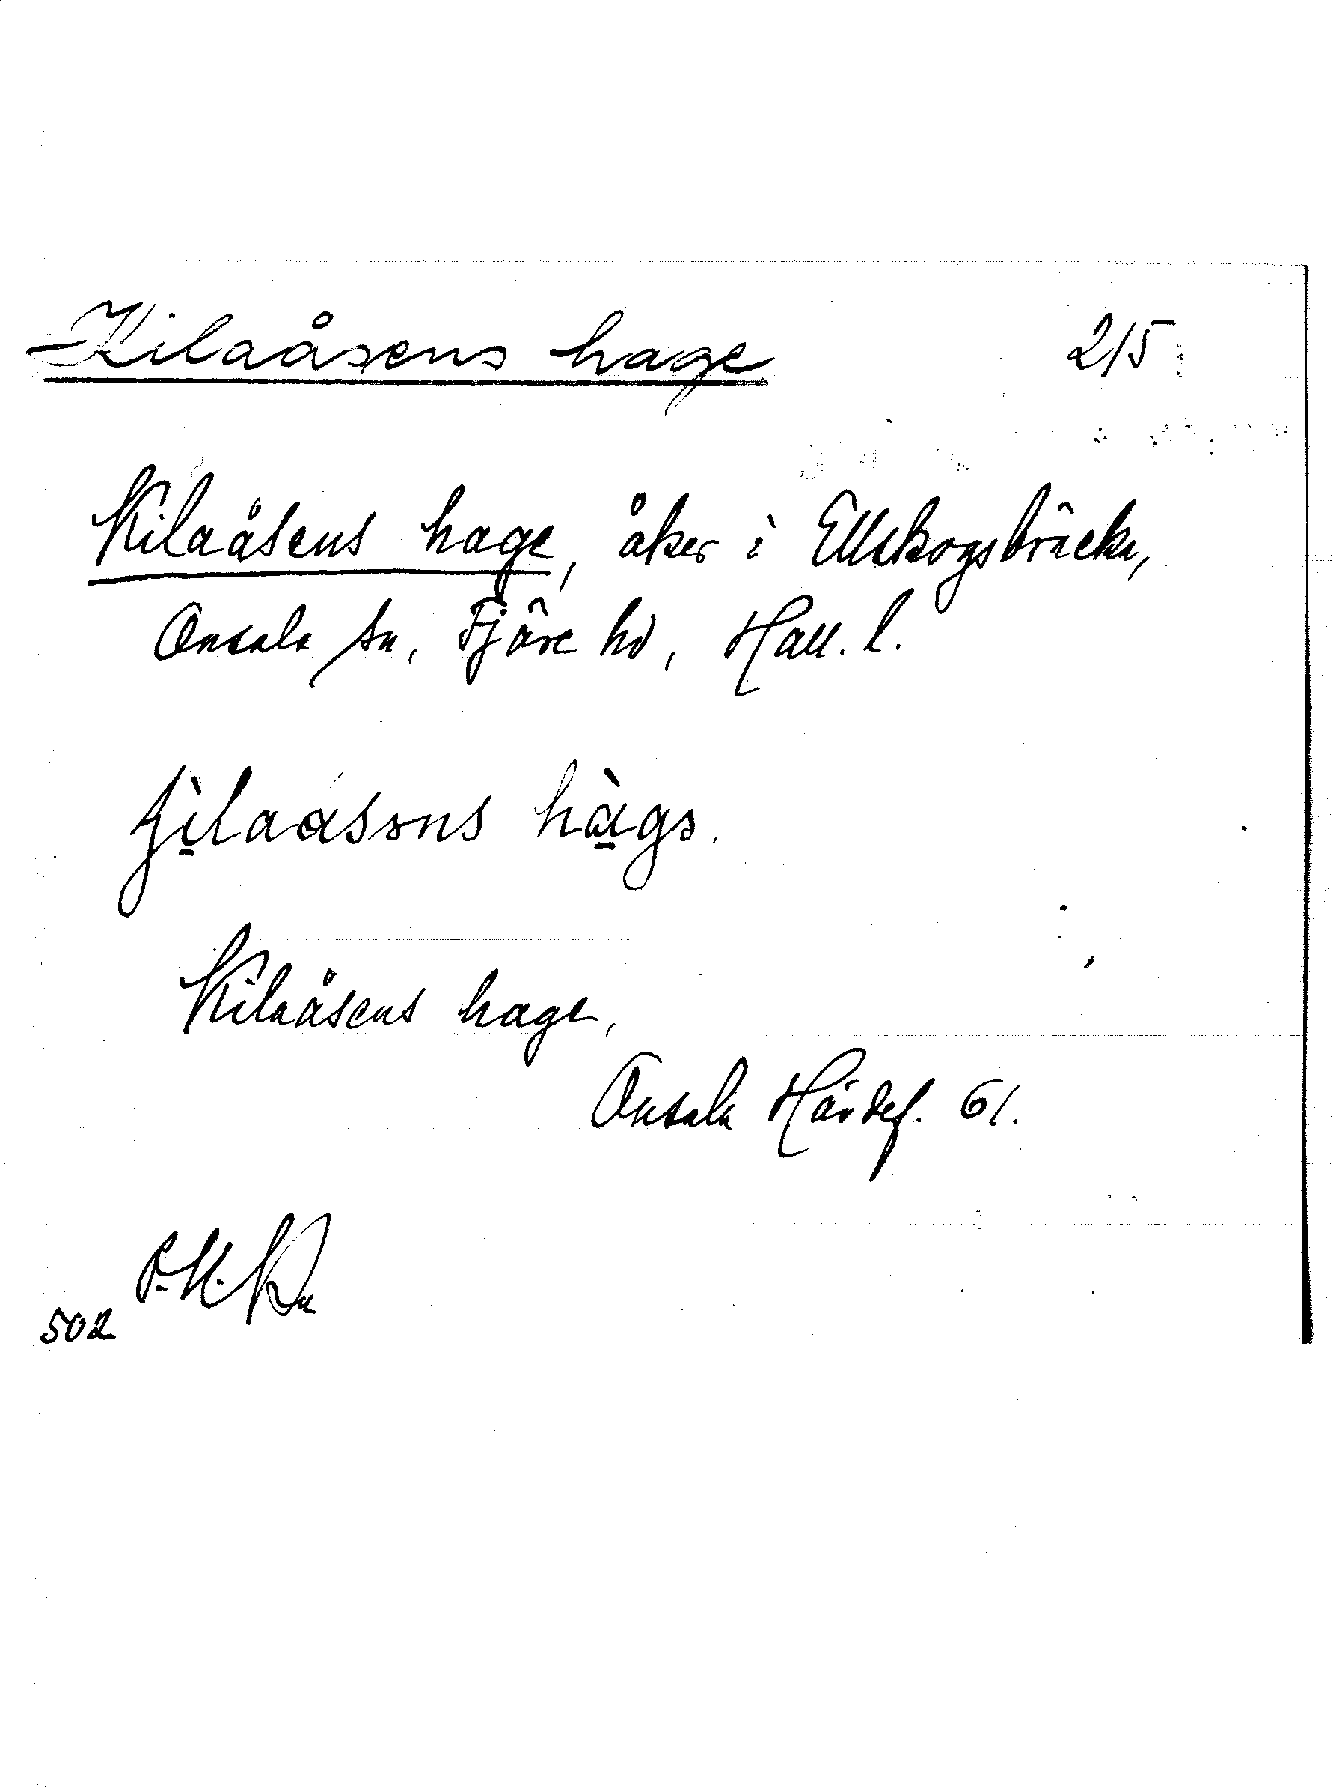 Kilaåsens hage 2/5
Kilaåsens hage, åker i Ellskogsbräcka,
Onsala sn, Fjäre hd, Hall. l.
Kilaåsens hage,
Onsala Hävdef. 61.
502